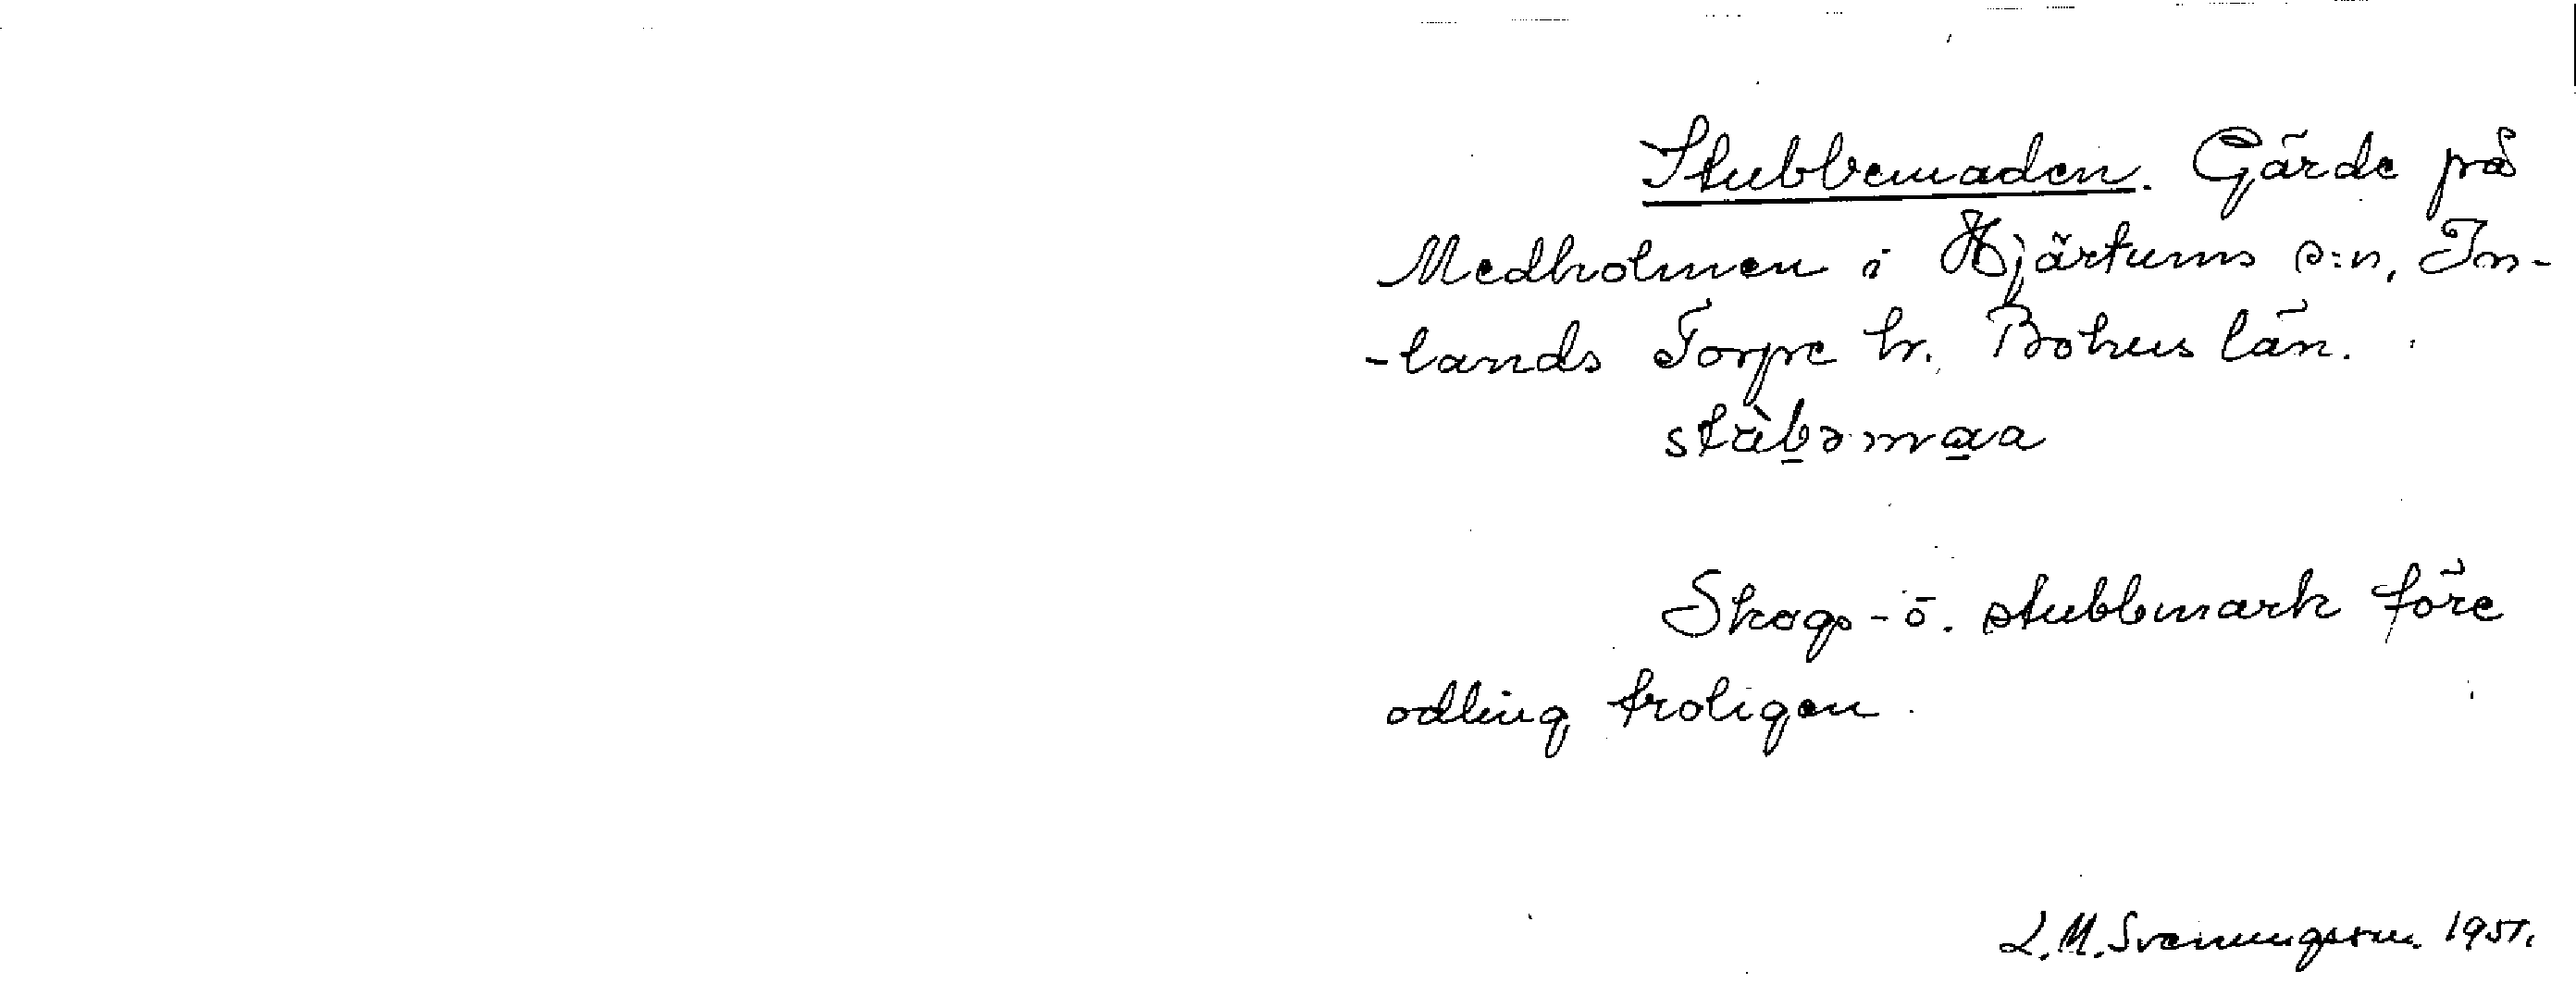 Stubbemaden. Gärde på
Medholmen i Hjärtums s:n, In-
-lands Torpe hr. Bohus län.
stùbəmaa
Skogs- o. stubbmark före
odling troligen.
L. M. Svenungsson. 1951.